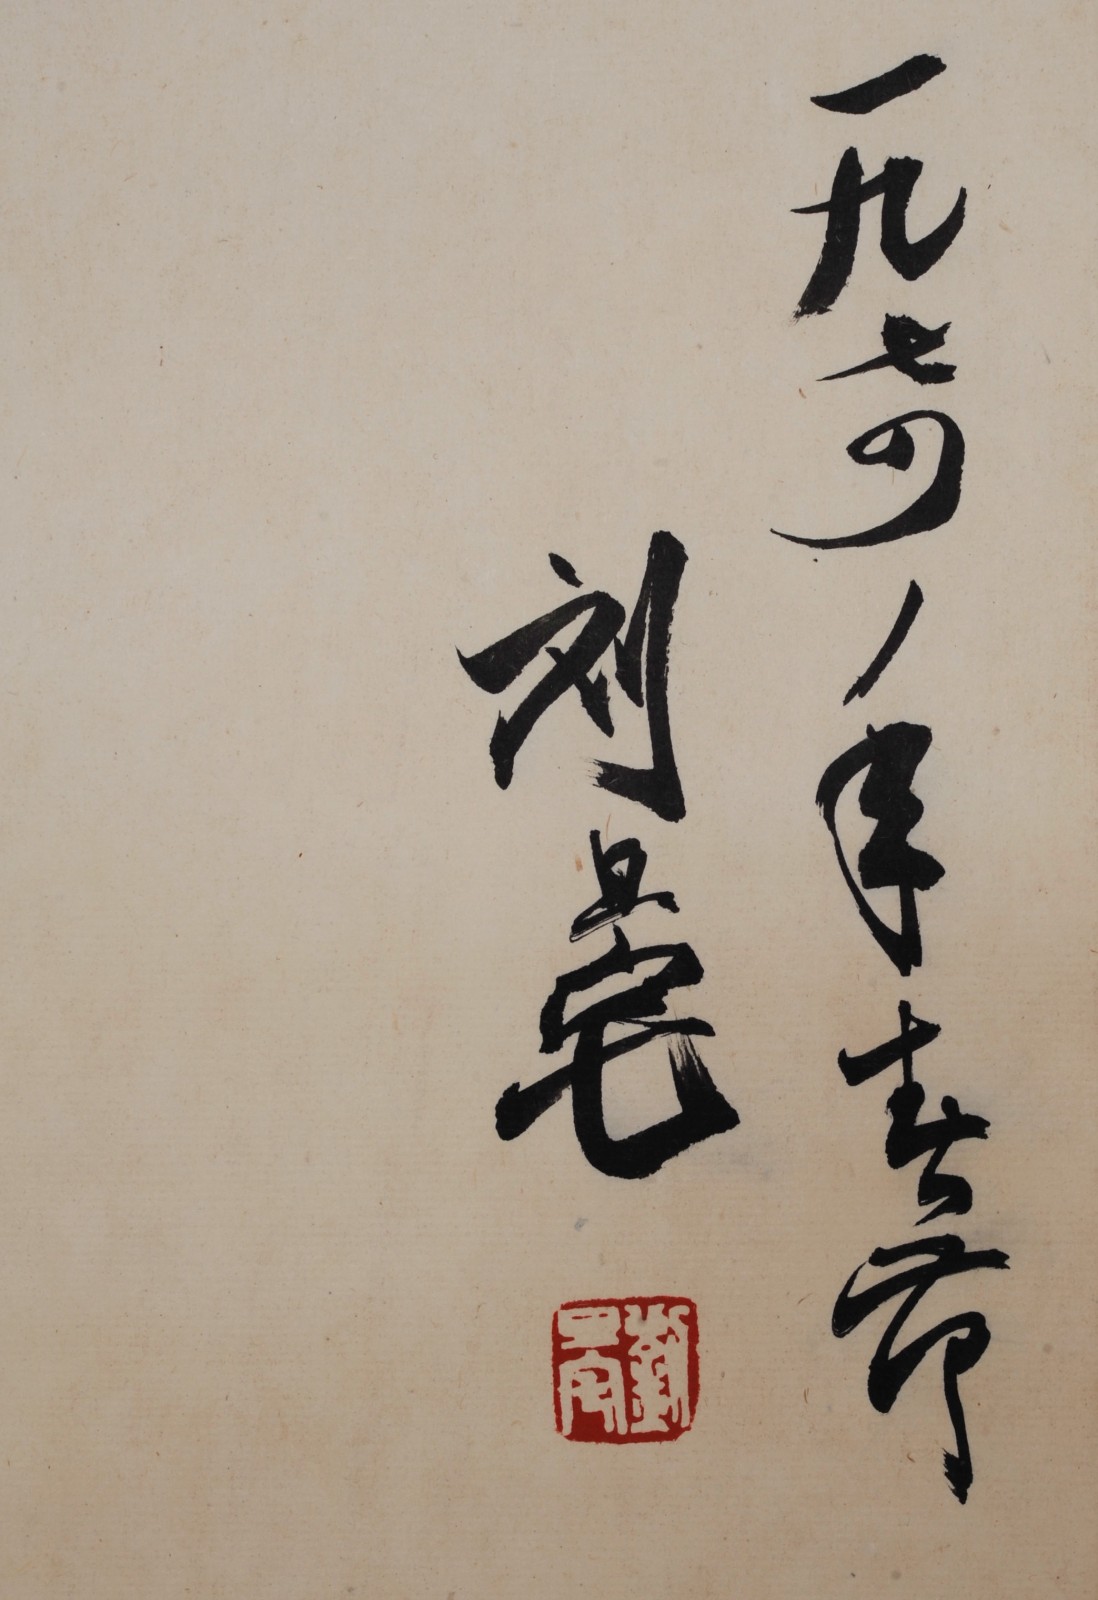 一九七四年春节
刘旦宅
劉旦宅